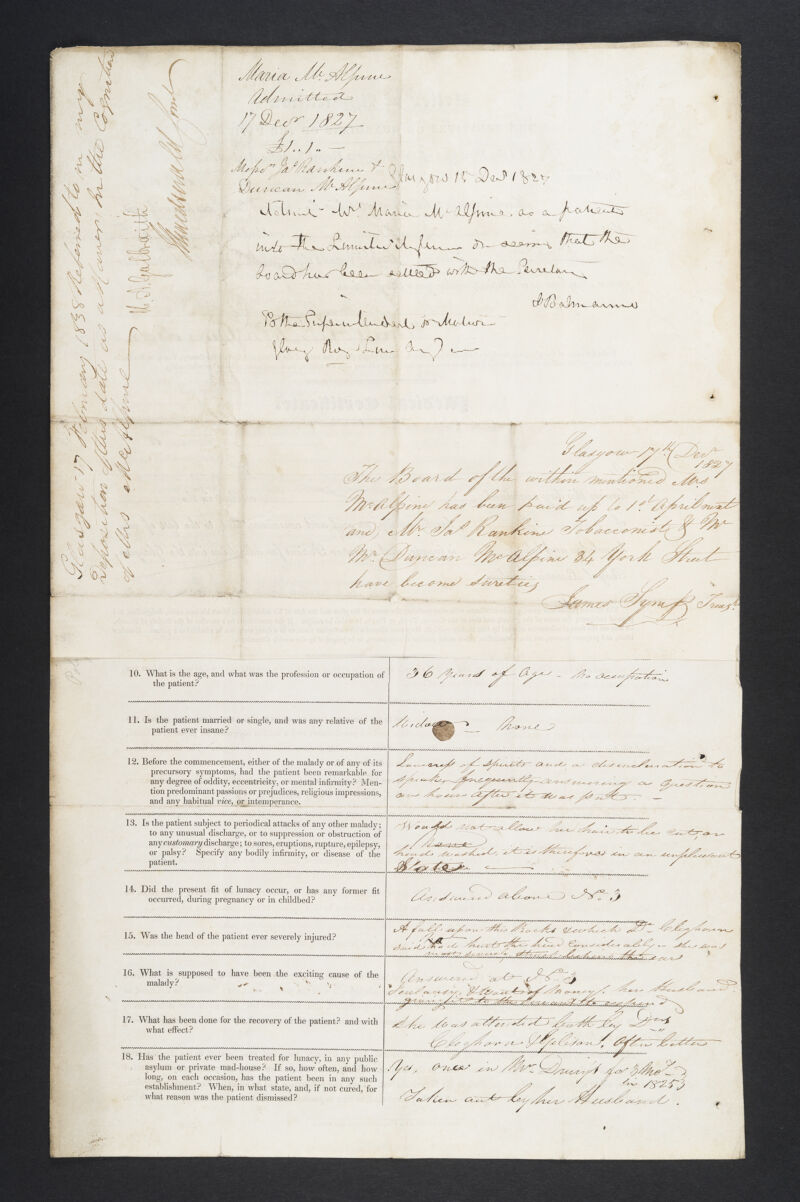 Maria Mc. Alpine
Admitted
17 Decr. 1827
£1..1..-
Messrs. Jas. Rankine &
Duncan Mc. Alpine
Glasgow 15 Decr 1827
Admit Maria McAlpine as a patient
into the Lunatic Asylum on seeing that the
board has been settled with the Secretary
J Balmanno
To the Superintendent or Matron
Glasg Roy Lun Asy
Glasgow 17th Decr
1827
The Board of the within mentioned Mrs
McAlpine has been paid up to 1st April next
and Mr. Jas. Rankine Tobacconist & Mr
Mr. Duncan McAlpine 84 York Street
have become sureties
James Symp Treasr.
Glasgow 17 February 1838 Referred to in my
Deposition of this date as a Haver in the Cognition
McAlpine
10. What is the age, and what was the profession or occupation of
the patient?
36 Years of Age - No occupation
11. Is the patient married or single, and was any relative of the
patient ever insane?
Widow - None
12. Before the commencement, either of the malady or of any of its
precursory symptoms, had the patient been remarkable for
any degree of oddity, eccentricity, or mental infirmity? Men-
tion predominant passions or prejudices, religious impressions,
and any habitual vice, or intemperance.
Lowness of Spirits and a disinclination to
speak frequently answering a question
an hour after it was put. -
13. Is the patient subject to periodical attacks of any other malady;
to any unusual discharge, or to suppression or obstruction of
any customary discharge; to sores, eruptions, rupture, epilepsy,
or palsy? Specify any bodily infirmity, or disease of the
patient.
Would not allow her hair to be cut, or
head washed, it is therefore in an unpleasant
State
14. Did the present fit of lunacy occur, or has any former fit
occurred, during pregnancy or in childbed?
Answered above No. 3
15. Was the head of the patient ever severely injured?
A fall upon the Rocks which Dr. Cleghorn
said had hurt the head considerably - she was
16. What is supposed to have been the exciting cause of the
malady?
Answered at No. 3
Jealousy, & want of money, her husband
17. What has been done for the recovery of the patient? and with
what effect?
She was attended both by Drs
Cleghorn & . After better
18. Has the patient ever been treated for lunacy, in any public
asylum or private mad-house? If so, how often, and how
long, on each occasion, has the patient been in any such
establishment? When, in what state, and, if not cured, for
what reason was the patient dismissed?
Yes, once in Mr. for 8 Mos.
in 1825
Taken out by her Husband.